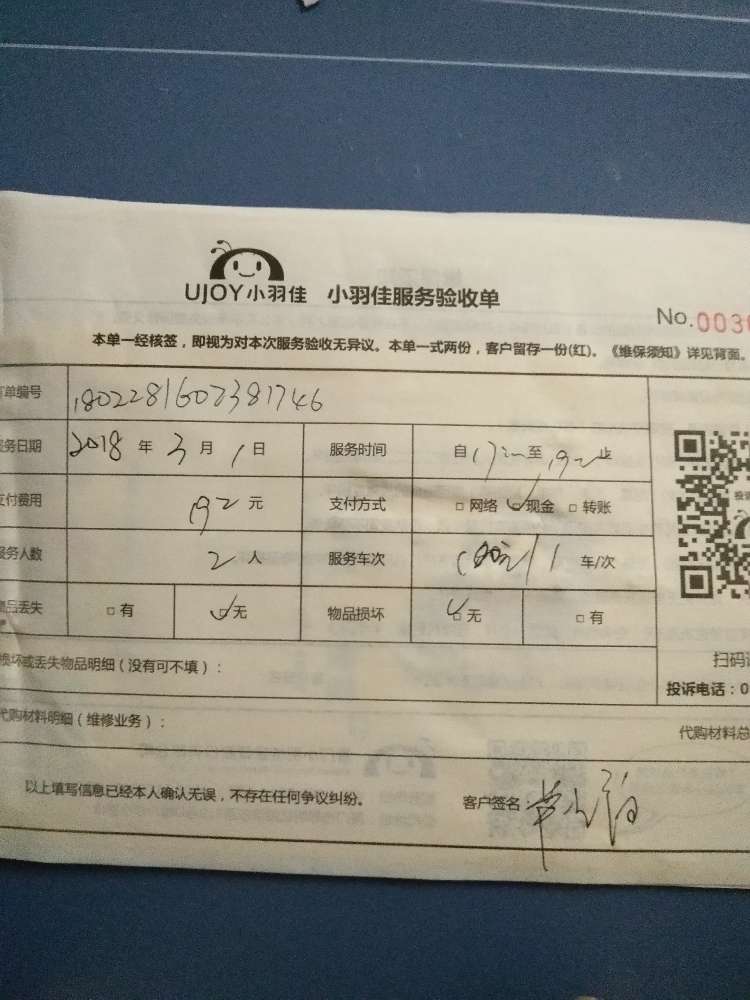 UJOY小羽佳 小羽佳服务验收单
No.003
本单一经核签，即视为对本次服务验收无异议。本单一式两份，客户留存一份(红)。《维保须知》详见背面。
单编号 1802281607381746
务日期 2018 年 3 月 1 日 服务时间 自 17 至 19 止
支付费用 192 元 支付方式 □ 网络 ☑ 现金 □ 转账
服务人数 2 人 服务车次 1 车/次
物品丢失 □ 有 ☑ 无 物品损坏 ☑ 无 □ 有
损坏或丢失物品明细（没有可不填）：
扫码
投诉电话：0
代购材料明细（维修业务）： 代购材料总
以上填写信息已经本人确认无误，不存在任何争议纠纷。 客户签名：